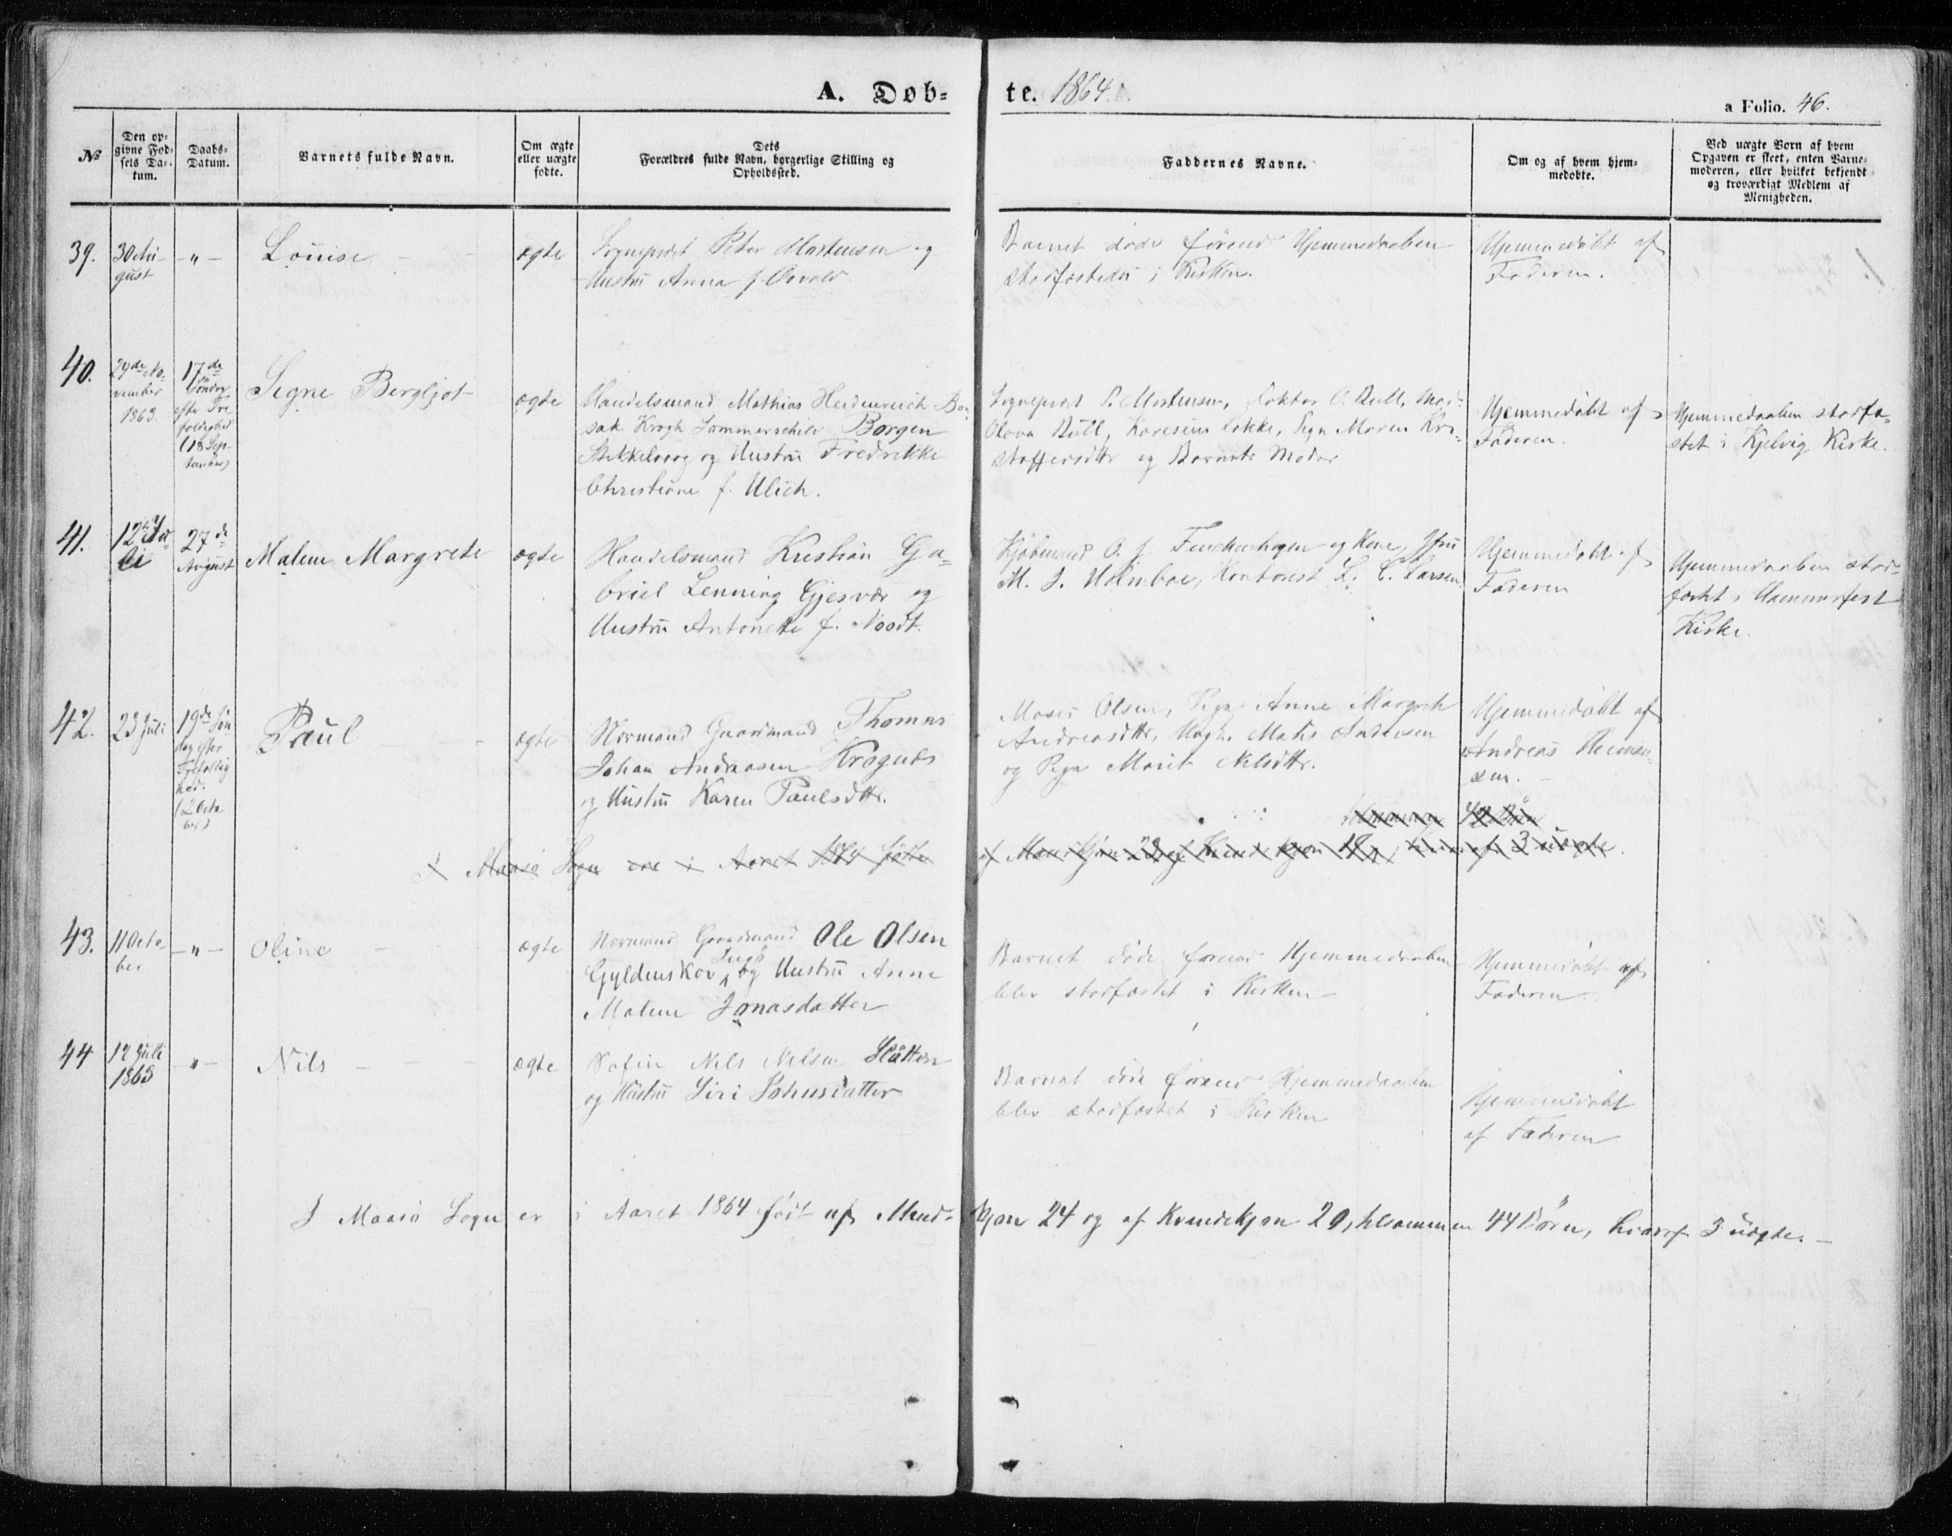 A. Døb-
te. 1864.
a Folio. 46.
№
Den op-
givne Fød-
sels Da-
tum.
Daabs-
Datum.
Barnets fulde Navn.
Om ægte
eller uægte
fødte.
Dets
Forældres fulde Navn, borgerlige Stilling og
Opholdssted.
Faddernes Navne.
Om og af hvem hjem-
medøbte.
Ved uægte Børn af hvem
Opgaven er skeet, enten Barne-
moderen, eller hvilket bekjendt
og troværdigt Medlem af
Menigheden.
39.
30 Au-
gust
-„-
Louise
ægte
Sognepræst Peter Mortensen og
Hustru Anna f.
Barnet døde førend Hjemmedaaben
stadfæstedes i Kirken.
Hjemmedøbt af
Faderen.
40.
29de No-
vember
1863
17de
Søndag
efter Tre
foldighed
(18 Sep-
tember)
Signe Bergljot
ægte
Handelsmand Mathias Heidenreich
Krogh Sommerschild Borgen
og Hustru Fredrikke
Christiane f. Ulich.
Sognepræst P. Mortensen, Doktor O. Bull, Mad.
Olava Bull, Løkke, Pige Maren Kri-
stoffersdtr og Barnets Moder
Hjemmedøbt af
Faderen.
Hjemmedaaben stadfæ-
stet i Kjelvig Kirke.
41.
12 Ju
li
27de
August
Malene Margrete
ægte
Handelsmand Kristian Ga-
briel Lenning Gjesvær og
Hustru Antonette f. Noodt.
Kjøbmand O. J. Finckenhagen og Kone, Jfru
M. J. Holmboe, Kontorist L. C. Larsen.
Hjemmedøbt af
Faderen
Hjemmedaaben stad-
fæstet i Hammerfest
Kirke.
42.
23 Juli
19de Søn
dag efter
Trefoldig
hed.
(2 Octo
ber)
Paul
ægte
Normand Gaardmand Thomas
Johan Andreasen
og Hustru Karen Paulsdtr.
Moses Olsen, Pige Anne Margreth
Andreasdtr, Ungk. Mats Andersen
og Pige Marit Nilsdtr.
Hjemmedøbt af
Andreas
sen.
I Maasø Sogn ere i Aaret 1864 fødte
af Mandkjøn og af Kvindekjøn 18, hvoraf 3 uægte.
43.
11 Octo-
ber
-„-
Oline
ægte
Normand Gaardmand Ole Olsen
Gyldenskov og Hustru Anne
Malene Jonasdatter
Barnet døde førend Hjemmedaaben
blev stadfæstet i Kirken
Hjemmedøbt af
Faderen
44
12 Juli
1863
„
Nils
ægte
Søfin Nils Nilsen Hatten
og Hustru Siri Johnsdatter
Barnet døde førend Hjemmedaaben
blev stadfæstet i Kirken
Hjemmedøbt
af Faderen
I Maasø Sogn er i Aaret 1864 født af Mand-
kjøn 24 og af Kvindekjøn 20, tilsammen 44 Børn, hvoraf 3 uægte.